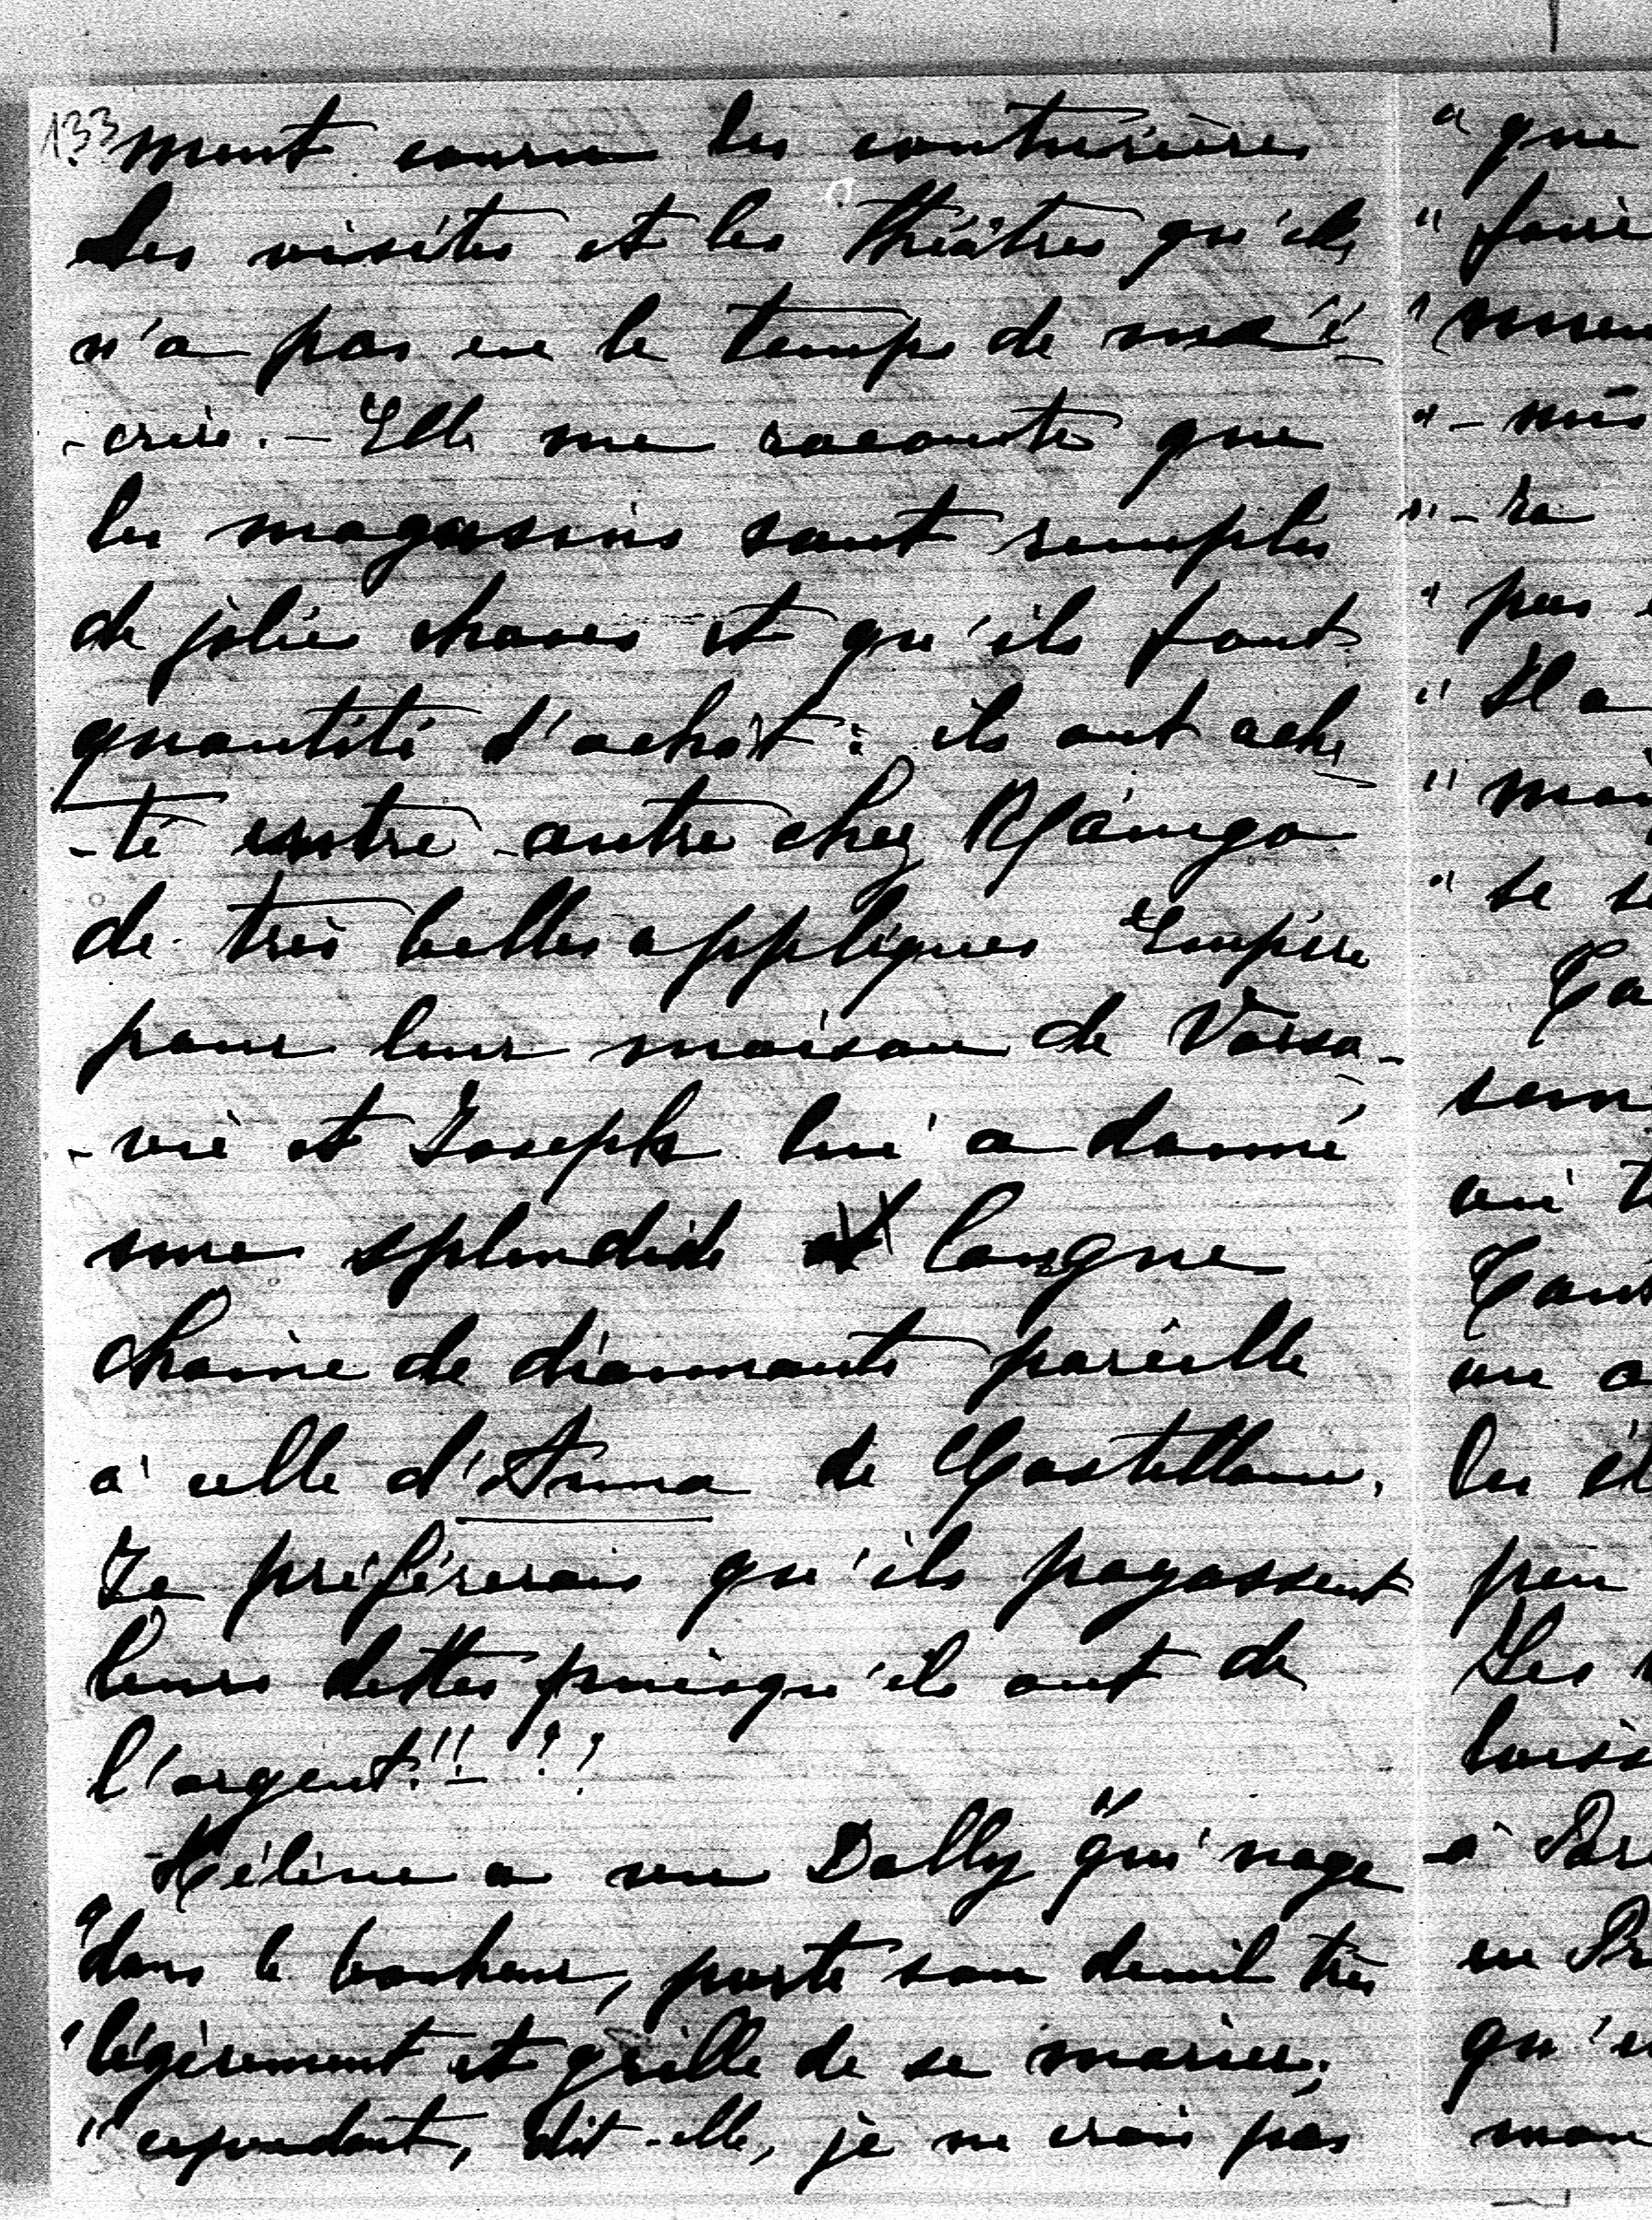 133
ment courir les couturières
les visites et les théâtres qu'elle
n'a pas eu le temps de m'é-
-crire. - Elle me raconte que
les magasins sont remplis
de jolies choses et qu'ils font
quantité d'achat : ils ont ache
-té entre autre chez
de très belles appliques Empire
pour leur maison de Varso-
-vie et Joseph lui a donné
une splendide longue
chaine de diamants pareille
à celle d'Anna de Castellane.
Je préférerais qu'ils payassent
leurs dettes puisqu'ils ont de
l'argent!! - ??
Hélène a vu Dolly "qui nage
"dans le bonheur, porte son deuil très
"légèrement et grille de se marier;
"cependant, dit-elle, je ne crois pas
"que
"faire
"-ra
"pas
"Il a
"se
peu
Les